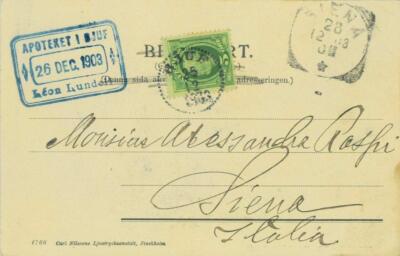 APOTEKET I DJUF
26 DEC. 1903
Léon Lundell
SIENA
28
12 03
(Denna sida
adresseringen.)
1903
Monsias Alessandra Rospi
Siena
Italia
4766 Carl Nilssons Ljustrycksanstalt, Stockholm.